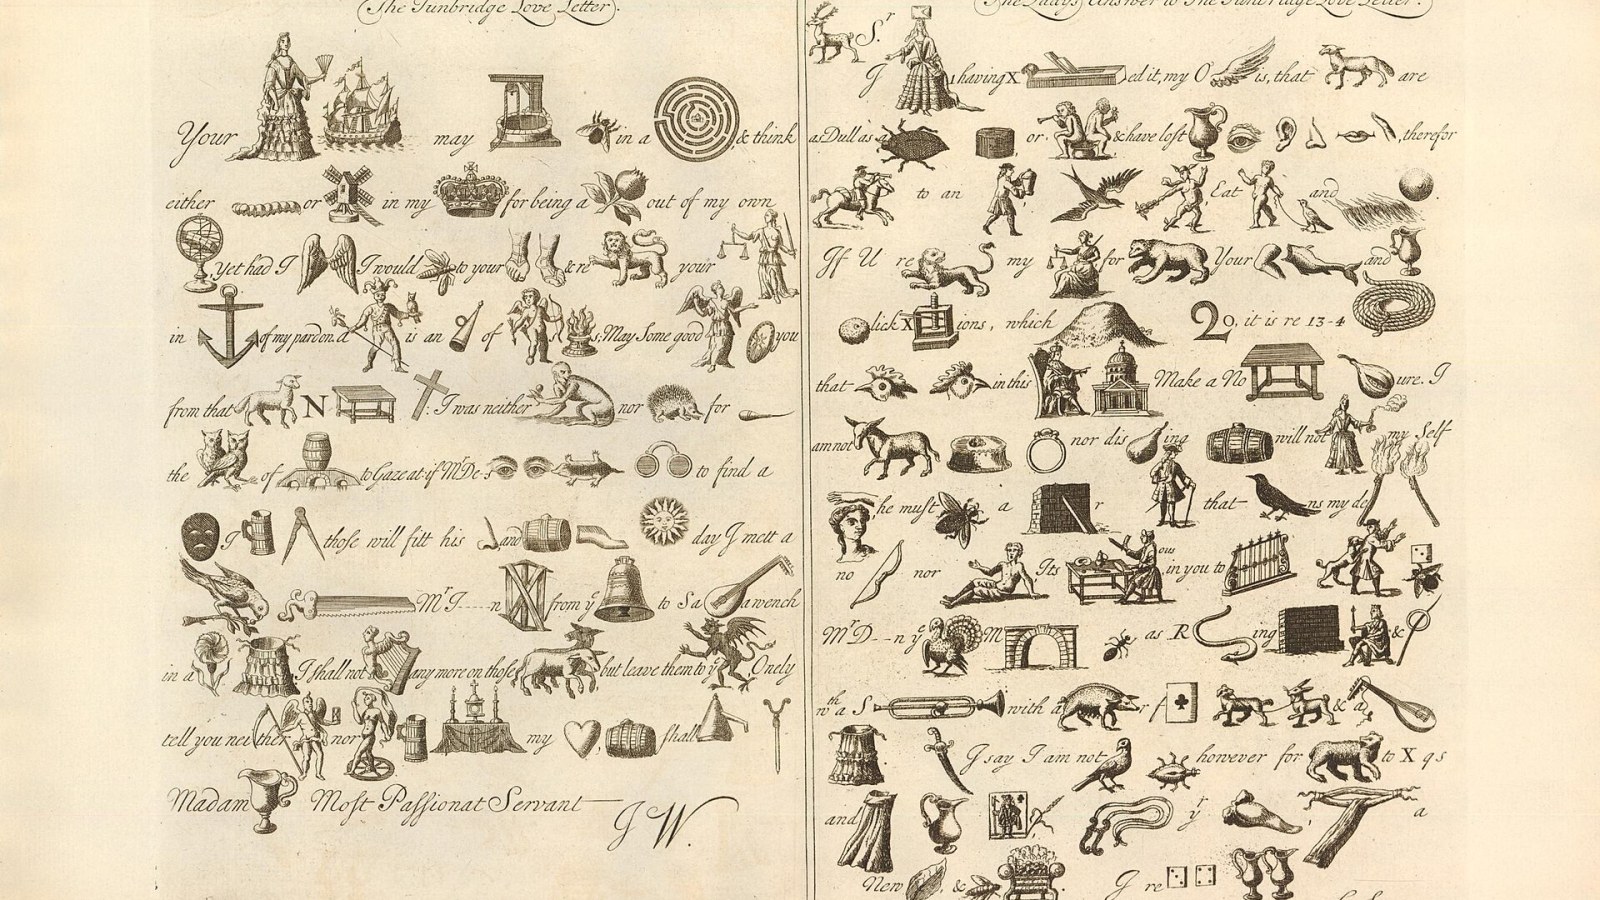 The Tunbridge Love Letter.
Your may in a & think
either or in my for being a out of my own
Yet had I I would to your & re your
in of my pardon. a is an of s, May Some good you
from that N : I was neither nor for
the of to Gaze at if Mr De-s to find a
I those will fitt his and day I mett a
Mr J----n from ye to Sa a wench
in a I shall not any more on those but leave them to ye Onely
tell you neither nor my shall
Madam Most Passionat Servant
J W.
The Ladys Answer to The Tunbridge Love Letter.
Sr
I having X ed it, my O is, that are
as Dull as a or & have lost , therfor
to an Eat and
If U re my for Your and
lick X ions, which 20, it is re 13-4
that in this Make a No ure. I
am not nor dis ing will not my Self
he must a r that ns my de
no nor Its ous in you to
Mr D--n ye M as R ing &
wth a S with a r f & a
I say I am not however for to X qs
and yr a
New , & . I re